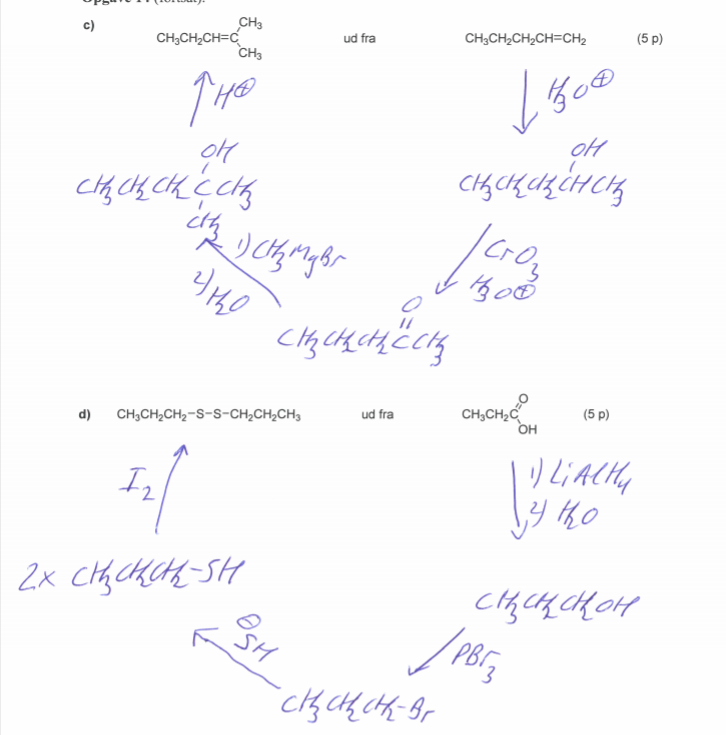 Opgave 14 (fortsat).
c) CH₃CH₂CH=C CH₃ CH₃ ud fra CH₃CH₂CH₂CH=CH₂ (5 p)
H⊕
H₃O⊕
OH
CH₃CH₂CH₂CCH₃
CH₃
OH
CH₃CH₂CH₂CHCH₃
1) CH₃MgBr
2) H₂O
CrO₃
H₃O⊕
O
CH₃CH₂CH₂CCH₃
d) CH₃CH₂CH₂-S-S-CH₂CH₂CH₃ ud fra CH₃CH₂C O OH (5 p)
I₂
1) LiAlH₄
2) H₂O
2x CH₃CH₂CH₂-SH
CH₃CH₂CH₂OH
⊖SH
PBr₃
CH₃CH₂CH₂-Br